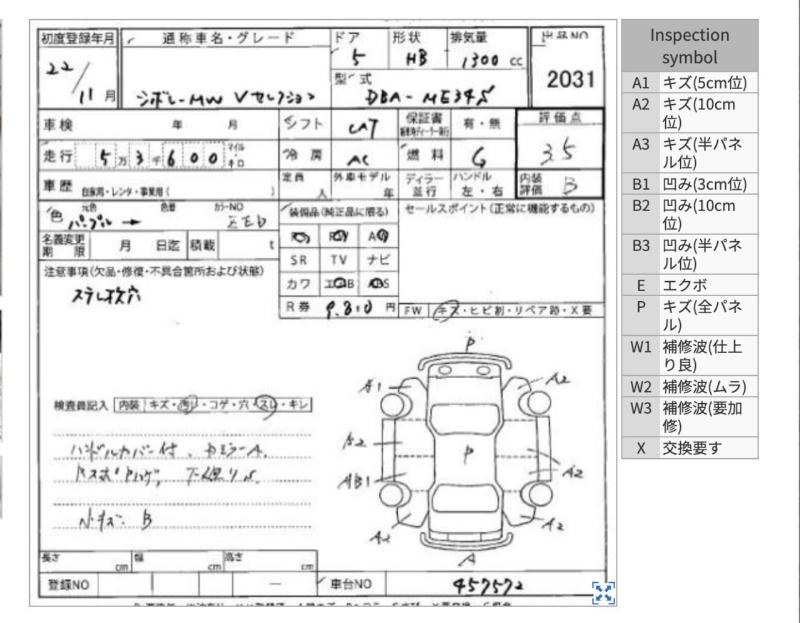 初度登録年月
22/11月
通称車名・グレード
シボレーMW Vセレクション
ドア 形状 排気量 出品NO
5 HB 1300 cc
型式
DBA-ME34S
2031
車検 年 月
シフト CAT
保証書 有・無
評価点
3.5
走行 5万3千600 マイル・キロ
冷房 AC
燃料 G
車歴 自家用・レンタ・事業用(
定員 人
外車モデル 年
ディーラー・並行
ハンドル 左・右
内装評価 B
色 元色 色替 カラーNO
パープル → ZEB
装備品(純正品に限る)
セールスポイント(正常に機能するもの)
名義変更期限 月 日迄 積載 t
SR TV ナビ
カワ
注意事項(欠品・修復・不具合箇所および状態)
ステレオ穴
R券 9.310 円
FW キズ・ヒビ割・リペア跡・X要
検査員記入 内装 キズ・汚レ・コゲ・穴・スレ・キレ
ハンドルカバー付、DミラーA.
下廻りS.
P
A1 A2
A2
P
AB1 A2
A2 A2
A
長さ cm 幅 cm 高さ cm
登録NO 車台NO 457572
Inspection symbol
A1 キズ(5cm位)
A2 キズ(10cm位)
A3 キズ(半パネル位)
B1 凹み(3cm位)
B2 凹み(10cm位)
B3 凹み(半パネル位)
E エクボ
P キズ(全パネル)
W1 補修波(仕上り良)
W2 補修波(ムラ)
W3 補修波(要加修)
X 交換要す